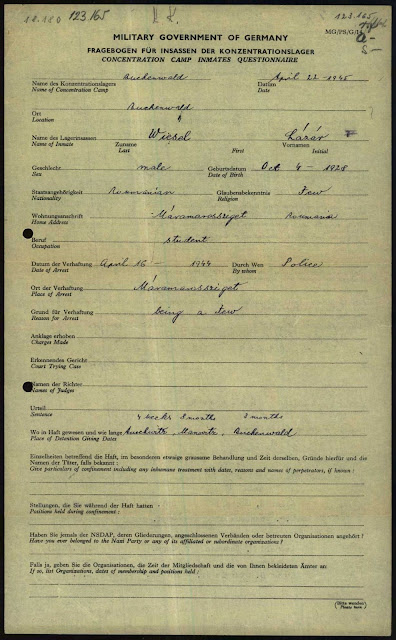 10.180 123.165
123.165
MILITARY GOVERNMENT OF GERMANY
MG/PS/G/14
FRAGEBOGEN FÜR INSASSEN DER KONZENTRATIONSLAGER
CONCENTRATION CAMP INMATES QUESTIONNAIRE
Name des Konzentrationslagers Buckenwald Datum April 22 - 1945
Name of Concentration Camp Date
Ort Buckenwald
Location
Name des Lagerinsassen Zuname Wiesel Lázár Vornamen
Name of Inmate Last First Initial
Geschlecht male Geburtsdatum Oct 4 - 1928
Sex Date of Birth
Staatsangehörigkeit Roumanian Glaubensbekenntnis Jew
Nationality Religion
Wohnungsanschrift Máramarossziget Roumania
Home Address
Beruf student
Occupation
Datum der Verhaftung April 16 - 1944 Durch Wen Police
Date of Arrest By whom
Ort der Verhaftung Máramarossziget
Place of Arrest
Grund für Verhaftung being a Jew
Reason for Arrest
Anklage erhoben
Charges Made
Erkennendes Gericht
Court Trying Case
Namen der Richter
Names of Judges
Urteil
Sentence 4 weeks 8 months 3 months
Wo in Haft gewesen und wie lange Auschwitz, Monowitz, Buckenwald
Place of Detention Giving Dates
Einzelheiten betreffend die Haft, im besonderen etwaige grausame Behandlung und Zeit derselben, Gründe hierfür und die
Namen der Täter, falls bekannt :
Give particulars of confinement including any inhumane treatment with dates, reasons and names of perpetrators, if known :
Stellungen, die Sie während der Haft hatten
Positions held during confinement :
Haben Sie jemals der NSDAP, deren Gliederungen, angeschlossenen Verbänden oder betreuten Organisationen angehört ?
Have you ever belonged to the Nazi Party or any of its affiliated or subordinate organizations ?
Falls ja, geben Sie die Organisationen, die Zeit der Mitgliedschaft und die von Ihnen bekleideten Ämter an:
If so, list Organizations, dates of membership and positions held :
(Bitte wenden)
(Please turn)